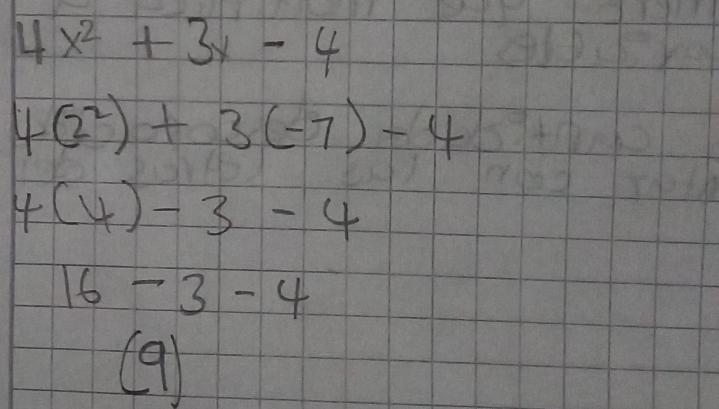 4x² + 3x - 4
4(2²) + 3(-1) - 4
4(4) - 3 - 4
16 - 3 - 4
(9)